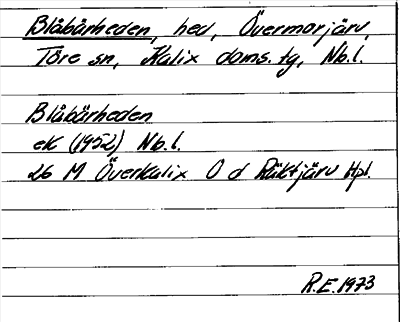 Blåbärheden, hed, Övermorjärv,
Töre sn, Kalix doms. tg, Nb.l.
Blåbärheden
ek (1952) Nb.l.
26 M Överkalix O d Räktjärv Hpl.
R.E. 1973